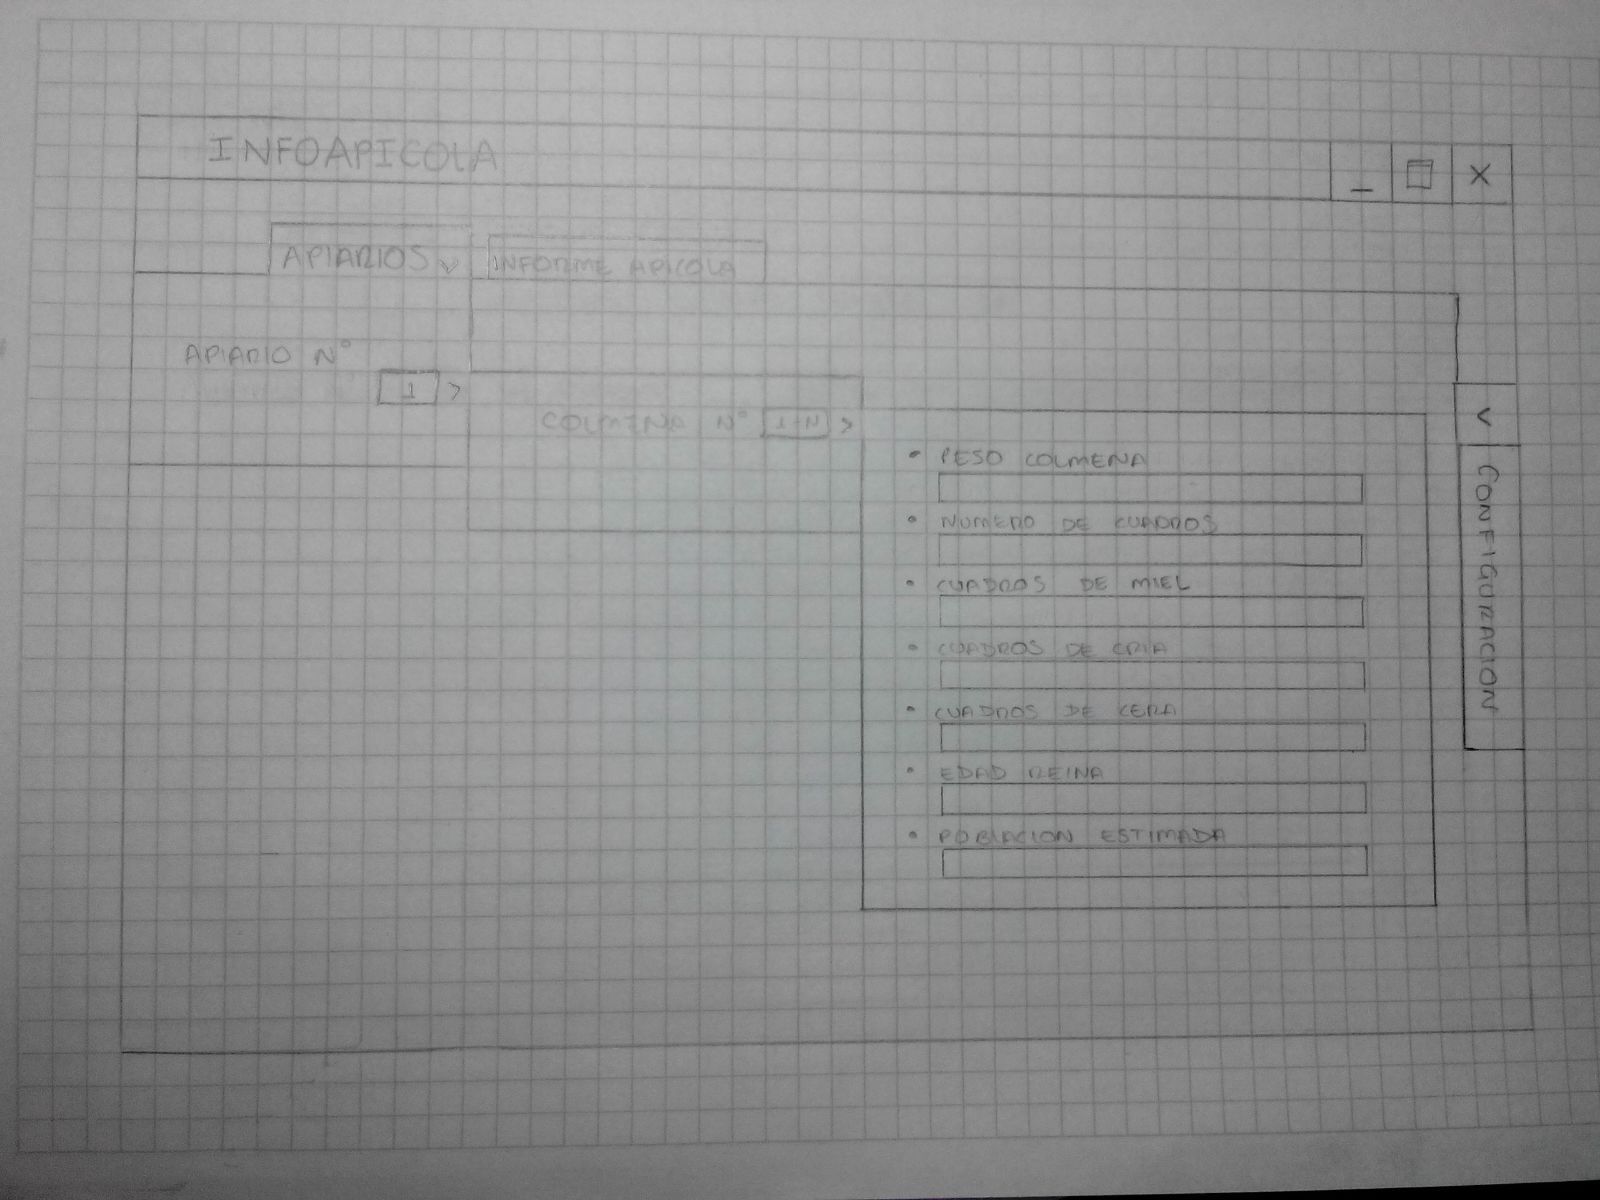 INFOAPICOLA
_ X
APIARIOS v INFORME APICOLA
APIARIO N°
1 >
COLMENA N° 1-N >
<
CONFIGURACION
• PESO COLMENA
• NUMERO DE CUADROS
• CUADROS DE MIEL
• CUADROS DE CRIA
• CUADROS DE CERA
• EDAD REINA
• POBLACION ESTIMADA